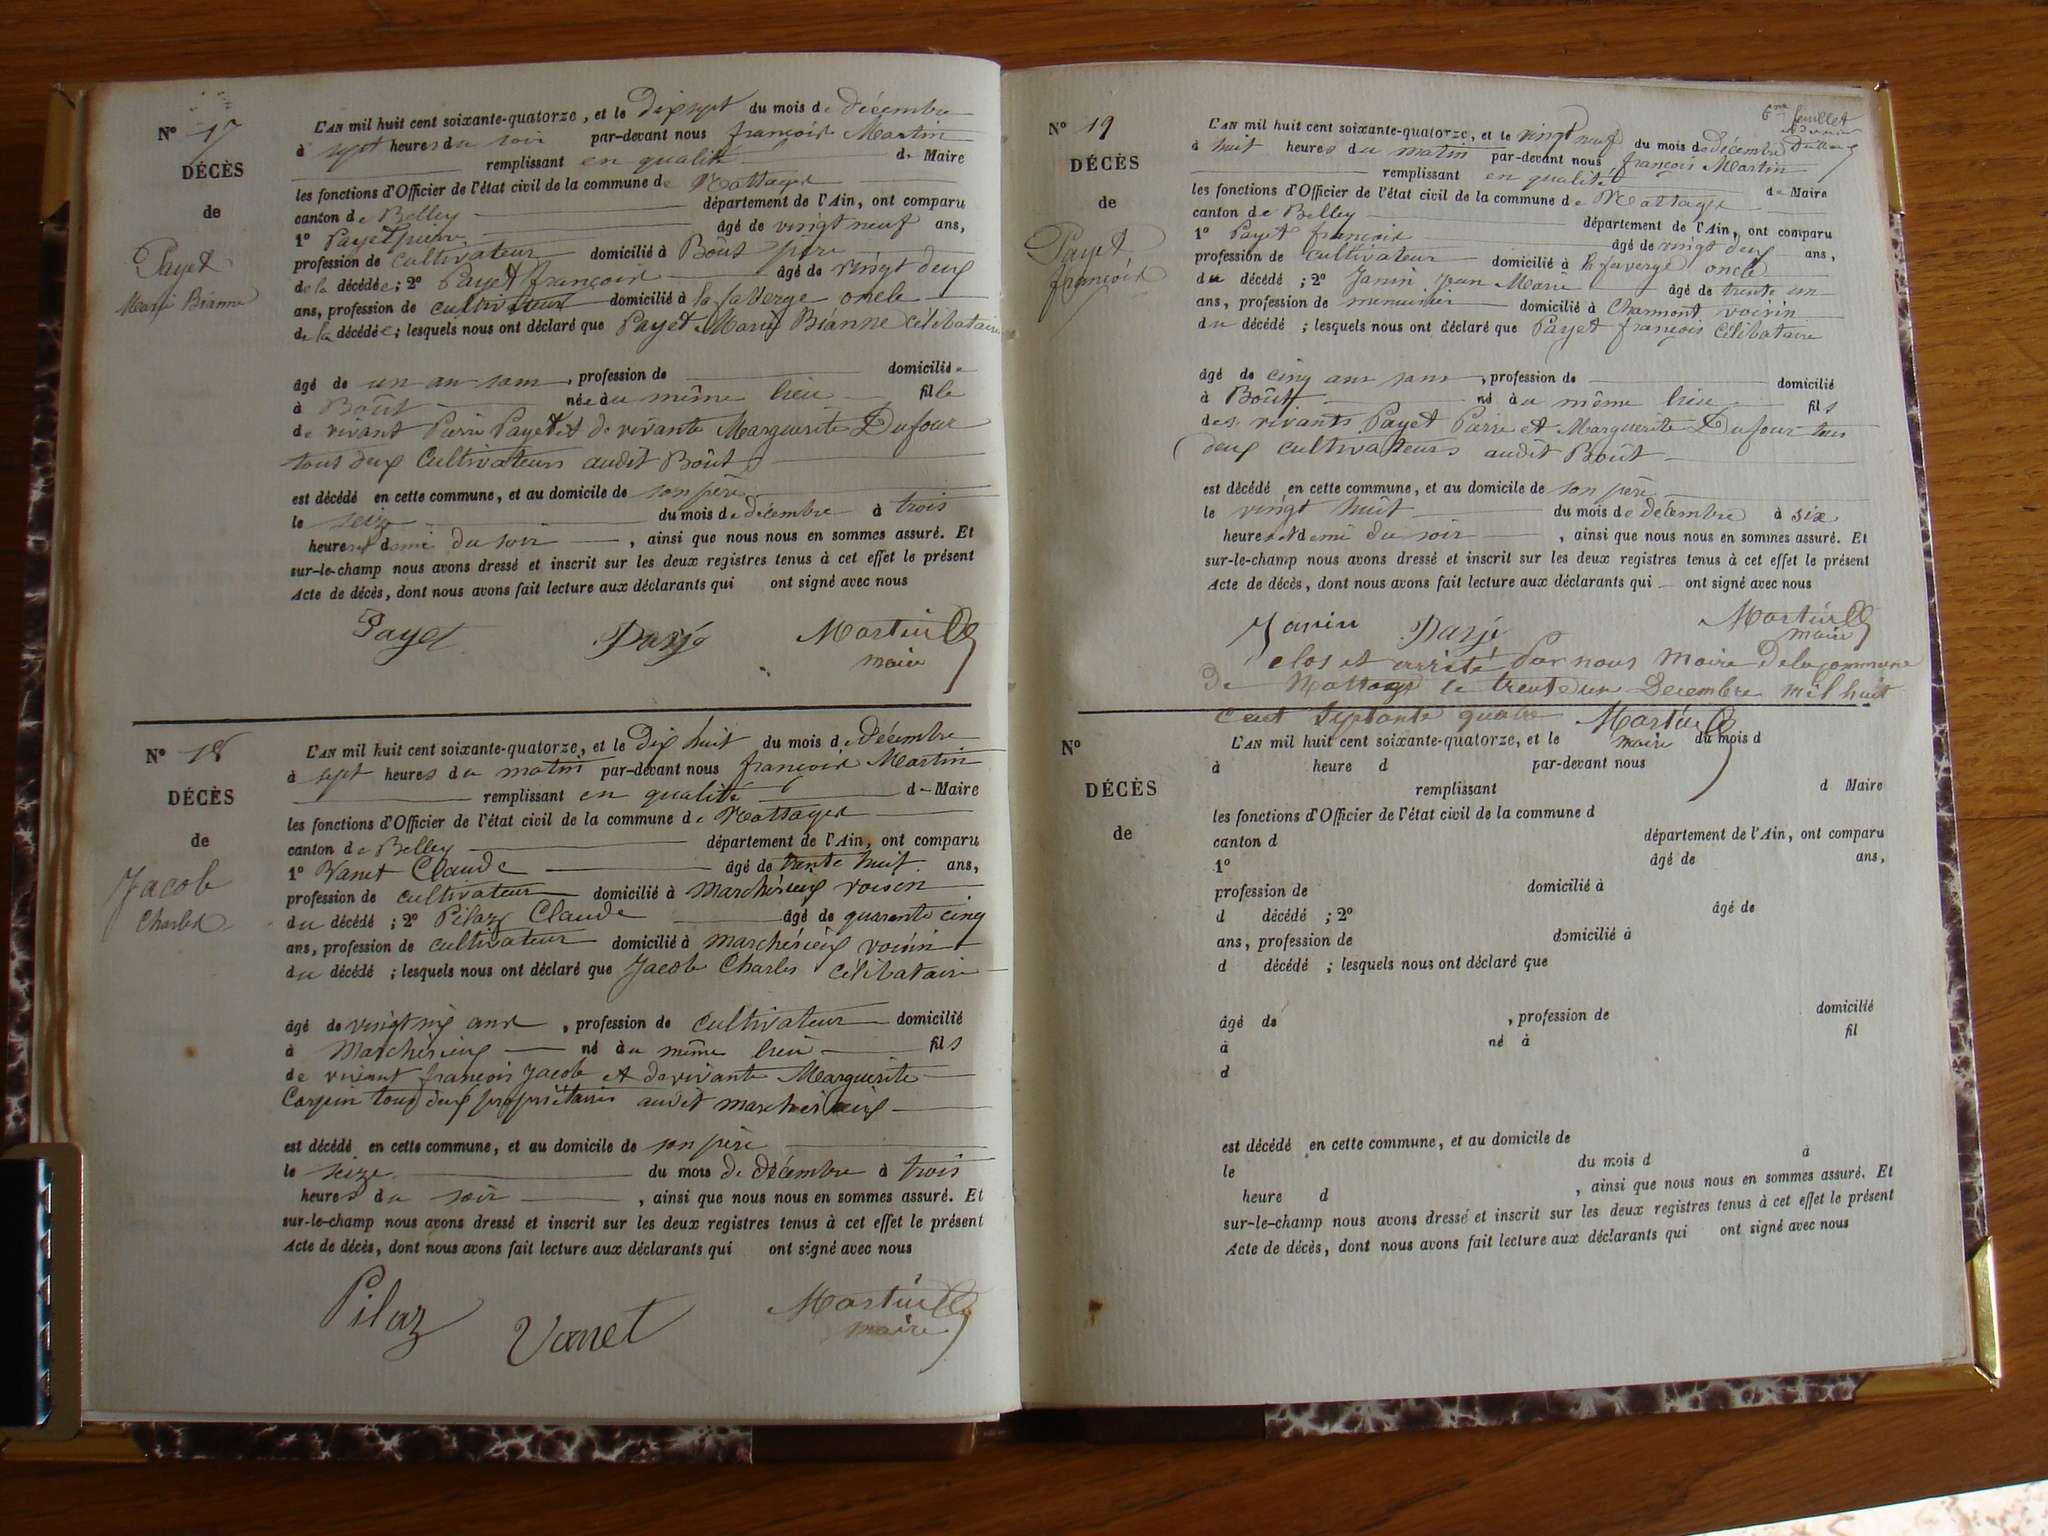 N° 17
DÉCÈS
de
Payet
Marie Bianne
L'AN mil huit cent soixante-quatorze, et le Dix sept du mois de décembre
à sept heures du soir par-devant nous françois Martin
remplissant en qualité de Maire
les fonctions d'Officier de l'état civil de la commune de Nattages
canton de Belley département de l'Ain, ont comparu
1° Payet pierre âgé de vingt neuf ans,
profession de cultivateur domicilié à Boût père
de la décédée; 2° Payet françois âgé de vingt deux
ans, profession de cultivateur domicilié à la faverge oncle
de la décédée; lesquels nous ont déclaré que Payet Marie Bianne célibataire
âgé de un an sans, profession de domiciliée
à Boût née au même lieu fille
de vivant Pierre Payet et de vivante Marguerite Dufour
tous deux Cultivateurs audit Boût
est décédé en cette commune, et au domicile de son père
le seize du mois de décembre à trois
heures et demie du soir, ainsi que nous nous en sommes assuré. Et
sur-le-champ nous avons dressé et inscrit sur les deux registres tenus à cet effet le présent
Acte de décès, dont nous avons fait lecture aux déclarants qui ont signé avec nous
Payet Martin
maire
N° 18
DÉCÈS
de
Jacob
Charles
L'AN mil huit cent soixante-quatorze, et le Dix huit du mois de décembre
à sept heures du matin par-devant nous françois Martin
remplissant en qualité de Maire
les fonctions d'Officier de l'état civil de la commune de Nattages
canton de Belley département de l'Ain, ont comparu
1° Vanet Claude âgé de trente huit ans,
profession de cultivateur domicilié à marchérieux voisin
du décédé; 2° Pilaz Claude âgé de quarante cinq
ans, profession de cultivateur domicilié à marchérieux voisin
du décédé; lesquels nous ont déclaré que Jacob Charles célibataire
âgé de vingt six ans, profession de cultivateur domicilié
à Marchérieux né au même lieu fils
de vivant françois Jacob et de vivante Marguerite
tous deux propriétaires audit marchérieux
est décédé en cette commune, et au domicile de son père
le seize du mois de décembre à trois
heures du soir, ainsi que nous nous en sommes assuré. Et
sur-le-champ nous avons dressé et inscrit sur les deux registres tenus à cet effet le présent
Acte de décès, dont nous avons fait lecture aux déclarants qui ont signé avec nous
Pilaz Vanet Martin
maire
6me feuillet
N° 19
DÉCÈS
de
Payet
françois
L'AN mil huit cent soixante-quatorze, et le vingt neuf du mois de décembre
à huit heures du matin par-devant nous françois Martin
remplissant en qualité de Maire
les fonctions d'Officier de l'état civil de la commune de Nattages
canton de Belley département de l'Ain, ont comparu
1° Payet françois âgé de vingt deux ans,
profession de cultivateur domicilié à la faverge oncle
du décédé; 2° Janin Jean Marie âgé de trente un
ans, profession de menuisier domicilié à Charmont voisin
du décédé; lesquels nous ont déclaré que Payet françois Célibataire
âgé de cinq ans sans, profession de domicilié
à Boût né au même lieu fils
des vivants Payet Pierre et Marguerite Dufour tous
deux cultivateurs audit Boût
est décédé en cette commune, et au domicile de son père
le vingt huit du mois de décembre à six
heures et demie du soir, ainsi que nous nous en sommes assuré. Et
sur-le-champ nous avons dressé et inscrit sur les deux registres tenus à cet effet le présent
Acte de décès, dont nous avons fait lecture aux déclarants qui ont signé avec nous
Janin Martin
maire
clos et arrêté par nous Maire de la commune
de Nattages le trente un Décembre mil huit
cent septante quatre Martin
maire
N°
DÉCÈS
de
L'AN mil huit cent soixante-quatorze, et le du mois d
à heure d par-devant nous
remplissant d Maire
les fonctions d'Officier de l'état civil de la commune d
canton d département de l'Ain, ont comparu
1° âgé de ans,
profession de domicilié à
d décédé; 2° âgé de
ans, profession de domicilié à
d décédé; lesquels nous ont déclaré que
âgé de, profession de domicilié
à né à fil
d
est décédé en cette commune, et au domicile de
le du mois d à
heure d, ainsi que nous nous en sommes assuré. Et
sur-le-champ nous avons dressé et inscrit sur les deux registres tenus à cet effet le présent
Acte de décès, dont nous avons fait lecture aux déclarants qui ont signé avec nous